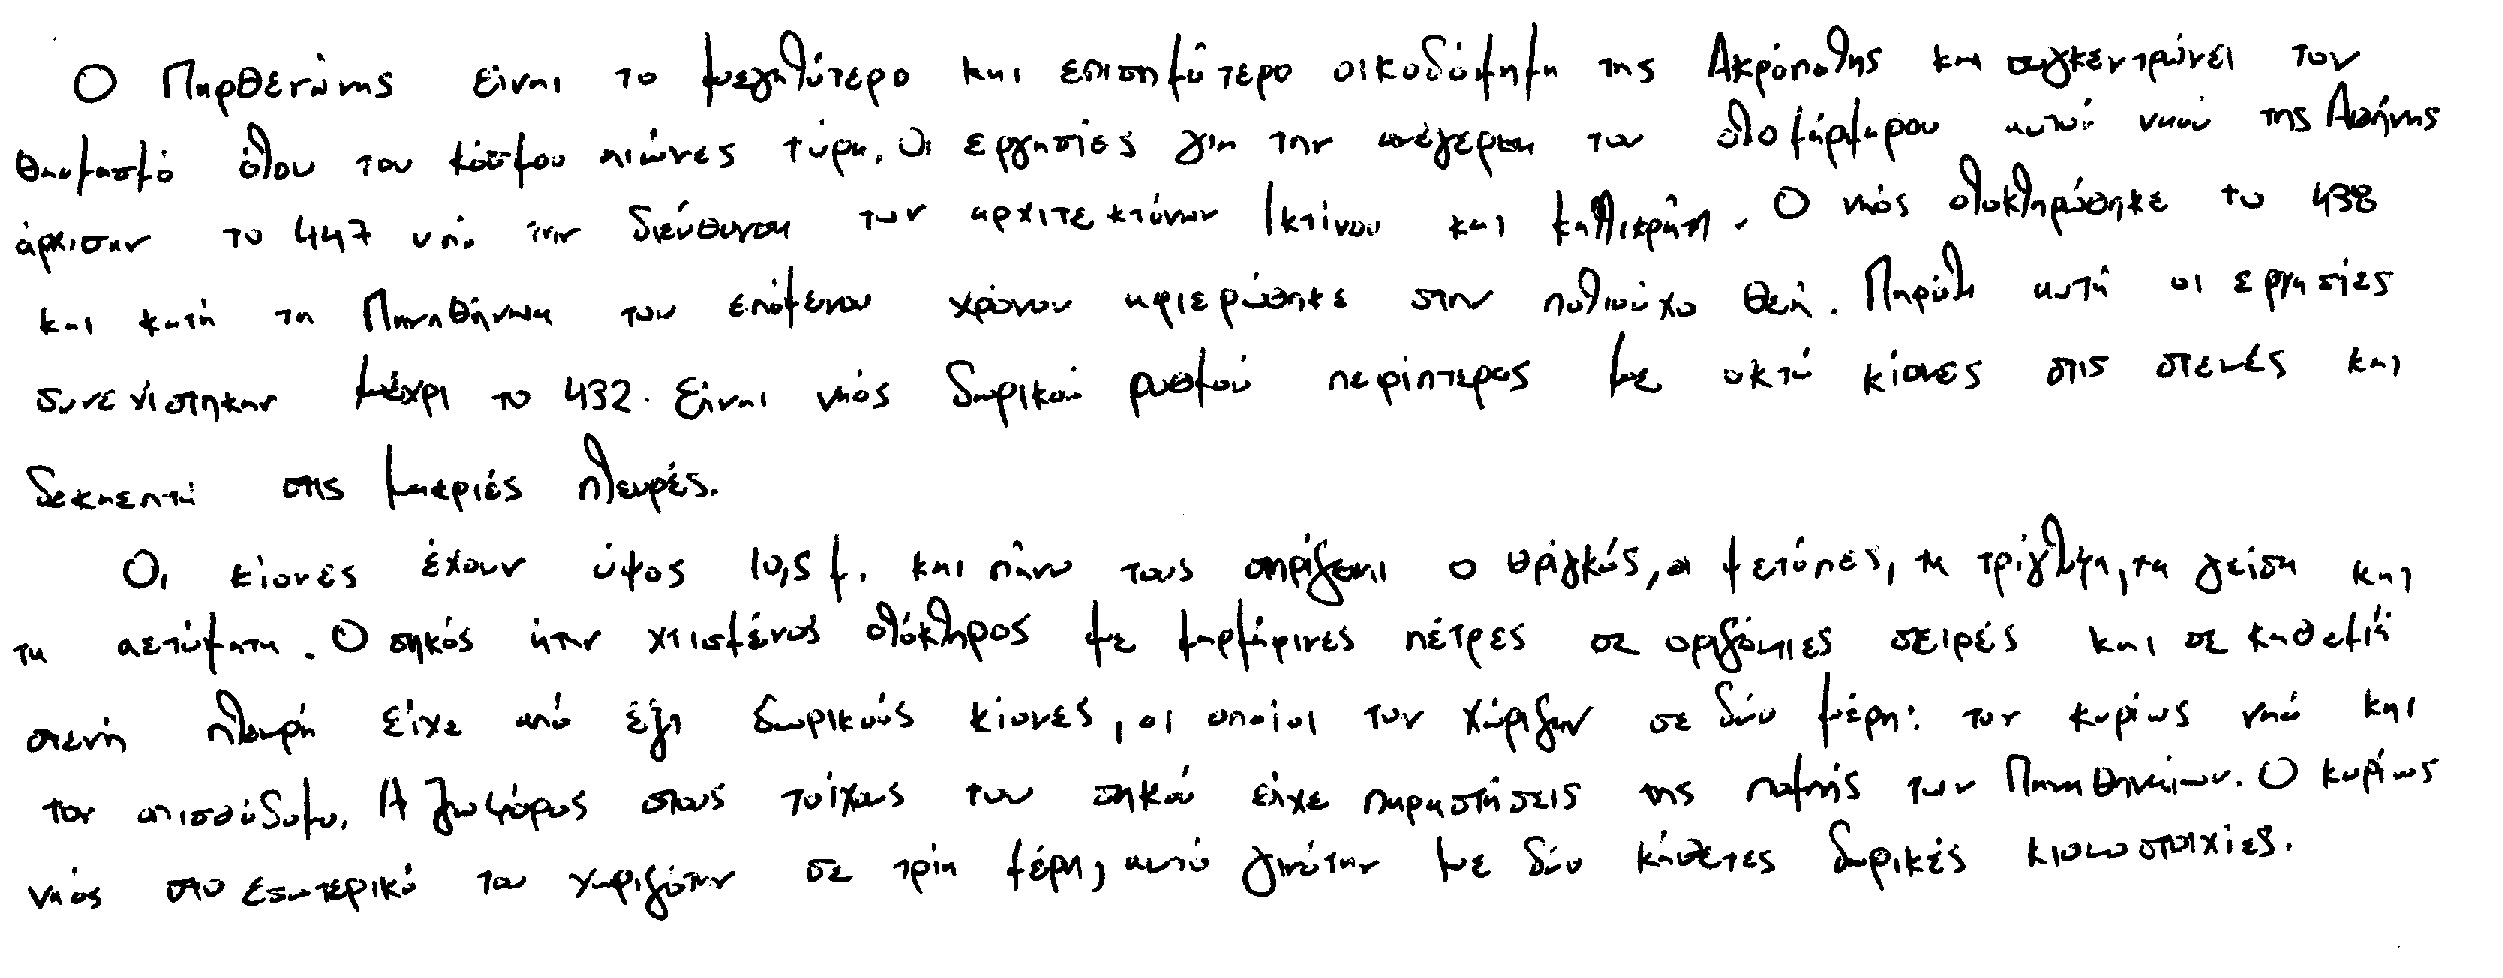 Ο Παρθενώνας είναι το μεγαλύτερο και επισημότερο οικοδόμημα της Ακρόπολης και συγκεντρώνει τον
θαυμασμό όλου του κόσμου αιώνες τώρα. Οι εργασίες για την ανέγερση του ολομάρμαρου αυτού ναού της Αθήνας
άρχισαν το 447 υπό την διεύθυνση των αρχιτεκτόνων Ικτίνου και Καλλικράτη. Ο ναός ολοκληρώθηκε το 438
και κατά τα Παναθήναια του επόμενου χρόνου αφιερώθηκε στην πολιούχο θεά. Παρόλα αυτά οι εργασίες
συνεχίστηκαν μέχρι το 432. Είναι ναός δωρικού ρυθμού περίπτερος με οκτώ κίονες στις στενές και
δεκαεπτά στις μακριές πλευρές.
Οι κίονες έχουν ύψος 10,5 μ. και πάνω τους στηρίζεται ο θρίγκός, οι μετόπες, τα τρίγλυφα, τα γείσα και
τα αετώματα. Ο σηκός ήταν χτισμένος ολόκληρος με μαρμάρινες πέτρες σε οριζόντιες σειρές και σε καθεμιά
στενή πλευρή είχε από έξι δωρικούς κίονες, οι οποίοι τον χώριζαν σε δύο μέρη: τον κυρίως ναό και
τον οπισθόδομο. Η ζωφόρος στους τοίχους του σηκού είχε παραστάσεις της πομπής των Παναθηναίων. Ο κυρίως
ναός στο εσωτερικό του χωριζόταν σε τρία μέρη, αυτό γινόταν με δύο κάθετες δωρικές κιονοστοιχίες.